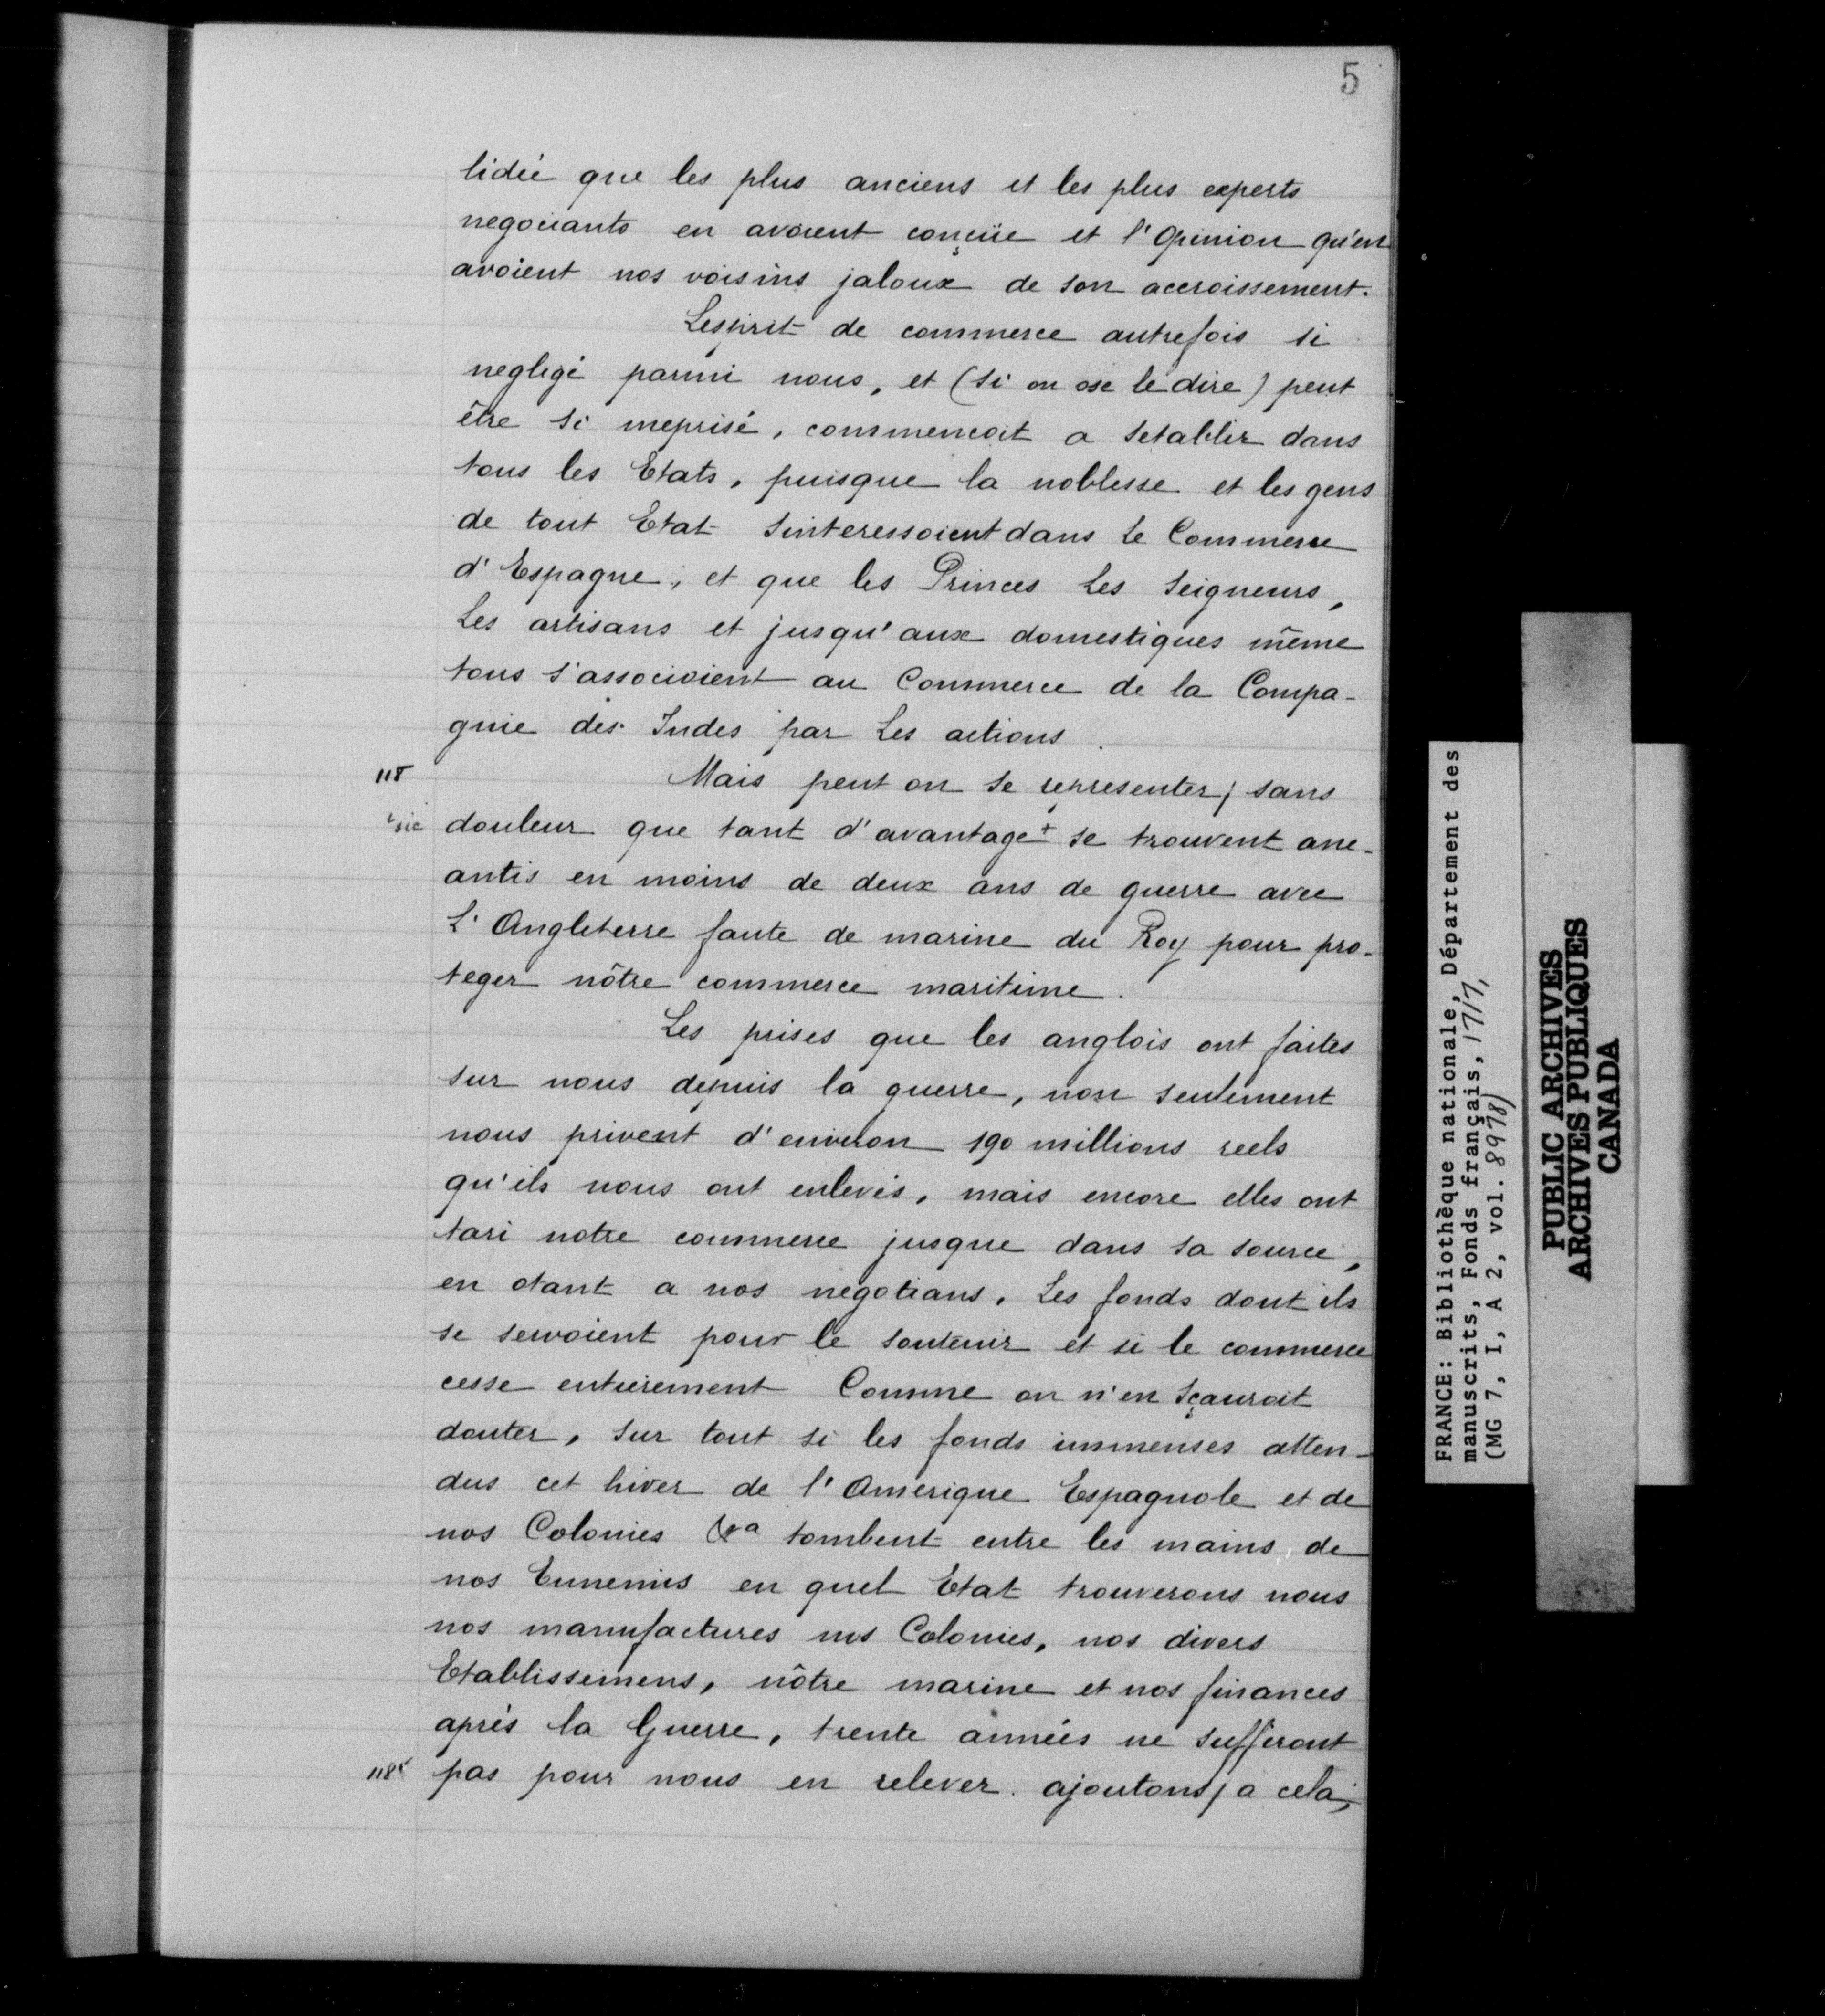 5
lidée que les plus anciens et les plus experts
negociants en avoient conçüe et l'Opinion qu'en
avoient nos voisins jaloux de son accroissement.
Lesprit de commerce autrefois si
negligé parmi nous, et (si on ose le dire) peut
être si meprisé, commencoit a setablir dans
tous les Etats, puisque la noblesse et les gens
de tout Etat sinteressoient dans le Commerce
d'Espagne, et que les Princes Les Seigneurs,
Les artisans et jusqu'aux domestiques même
tous s'associoient au Commerce de la Compa-
gnie des Indes par Les actions.
118
Mais peut on se representer, sans
+sic douleur que tant d'avantage+ se trouvent ane-
antis en moins de deux ans de guerre avec
L'Angleterre faute de marine du Roy pour pro-
teger nôtre commerce maritime.
Les prises que les anglois ont faites
sur nous depuis la guerre, non seulement
nous privent d'environ 190 millions reels
qu'ils nous ont enlevés, mais encore elles ont
tari notre commerce jusque dans sa source,
en otant a nos negotians, Les fonds dont ils
se servoient pour le soutenir et si le commerce
cesse entierement Comme on n'en sçauroit
douter, sur tout si les fonds immenses atten-
dus cet hiver de l'Amerique Espagnole et de
nos Colonies &a tombent entre les mains de
nos Ennemis en quel Etat trouverons nous
nos manufactures nos Colonies, nos divers
Etablissemens, nôtre marine et nos finances
après la Guerre, trente années ne suffiront
118v pas pour nous en relever. ajoutons/a cela,
FRANCE: Bibliothèque nationale, Département des
manuscrits, Fonds français, 1717,
(MG 7, I, A 2, vol. 8978)
PUBLIC ARCHIVES
ARCHIVES PUBLIQUES
CANADA